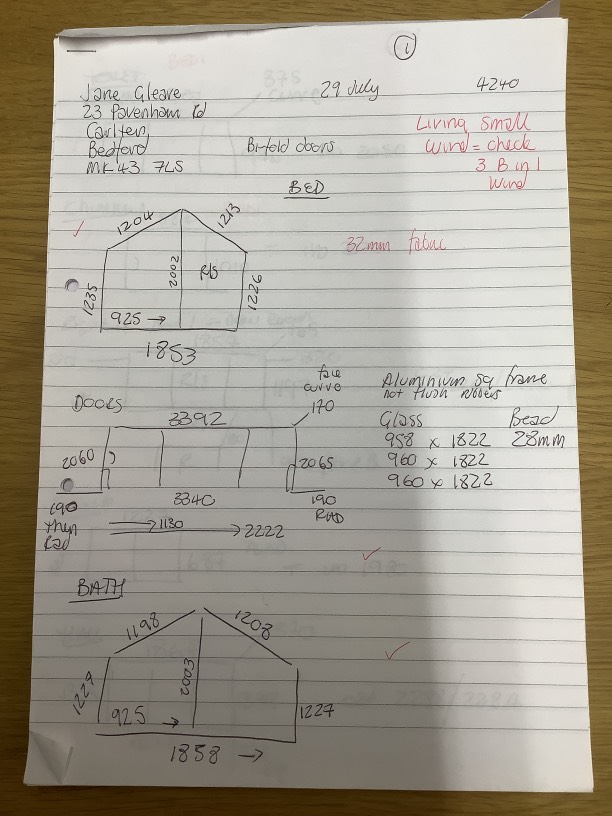 1
Jane Gleave 29 July 4240
23 Pavenham Rd
Carlton,
Bedford Bi-fold doors
MK43 7LS
Living small
Wind = check
3 B in 1
Wind
BED
1204 1213
32mm fabric
1235 2002 R/S 1226
925 →
1853
Aluminium sq frame
not flush rubbers
DOORS 3392
face
curve
170
Glass Bead
958 x 1822 28mm
960 x 1822
960 x 1822
2060 2065
3340
190 190
then RAD
Rad
→ 1130 → 2222
BATH
1198 1208
1229 2003 1227
925 →
1858 →